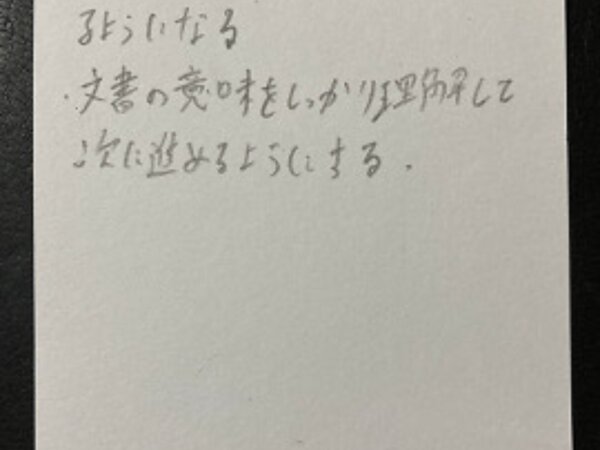 るようになる
・文書の意味をしっかり理解して
次に進めるようにする.